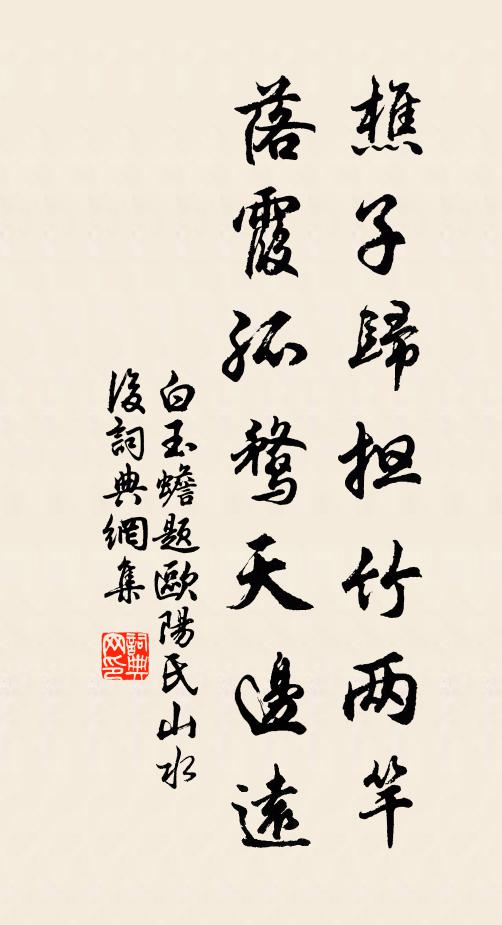 樵子歸担竹两竿
落霞孤鶩天邊遠
白玉蟾题歐陽氏山水
後詞典網集
詞典
网印